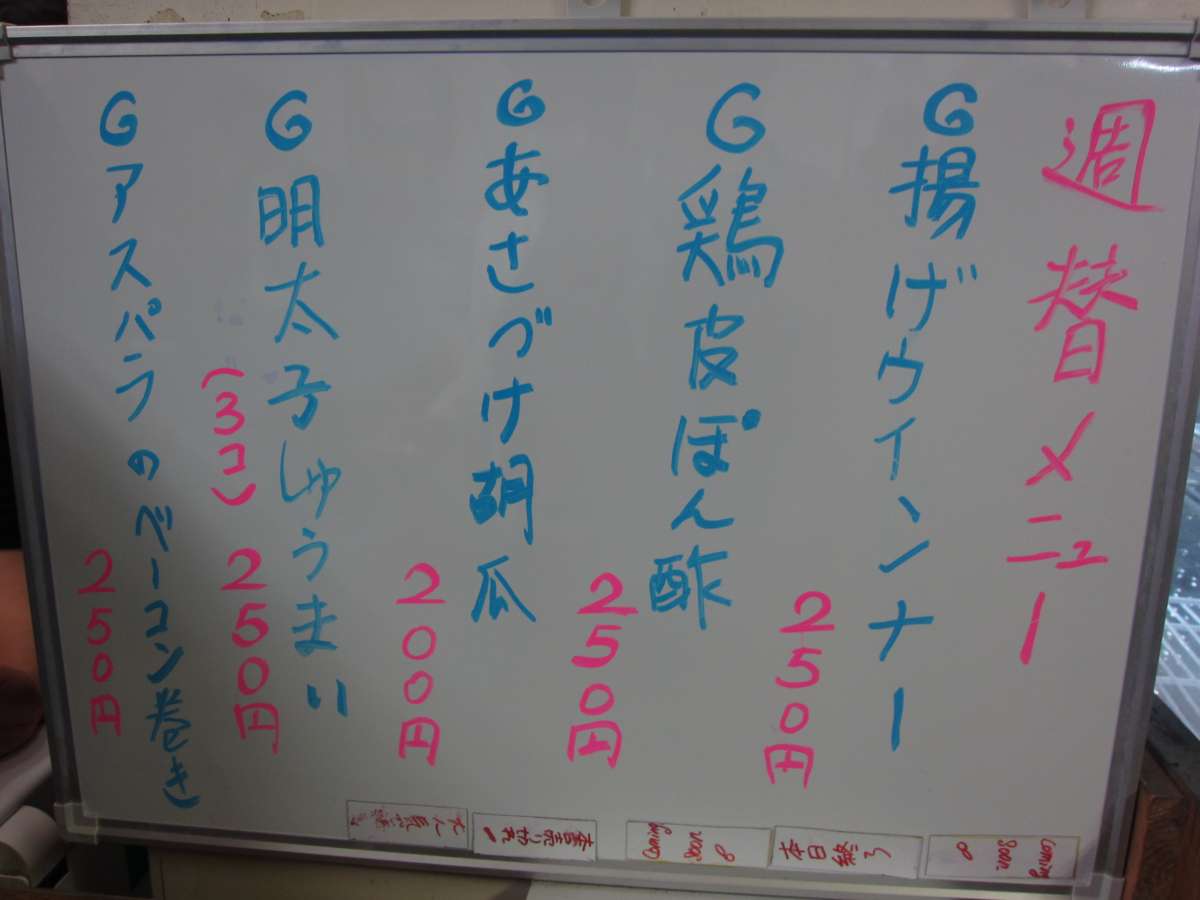 週替メニュー
G揚げウインナー
250円
G鶏皮ぽん酢
250円
Gあさづけ胡瓜
200円
G明太子しゅうまい
(3コ)250円
Gアスパラのベーコン巻き
250円
Coming
Soon
本日終了
Coming
Soon
売り切れ